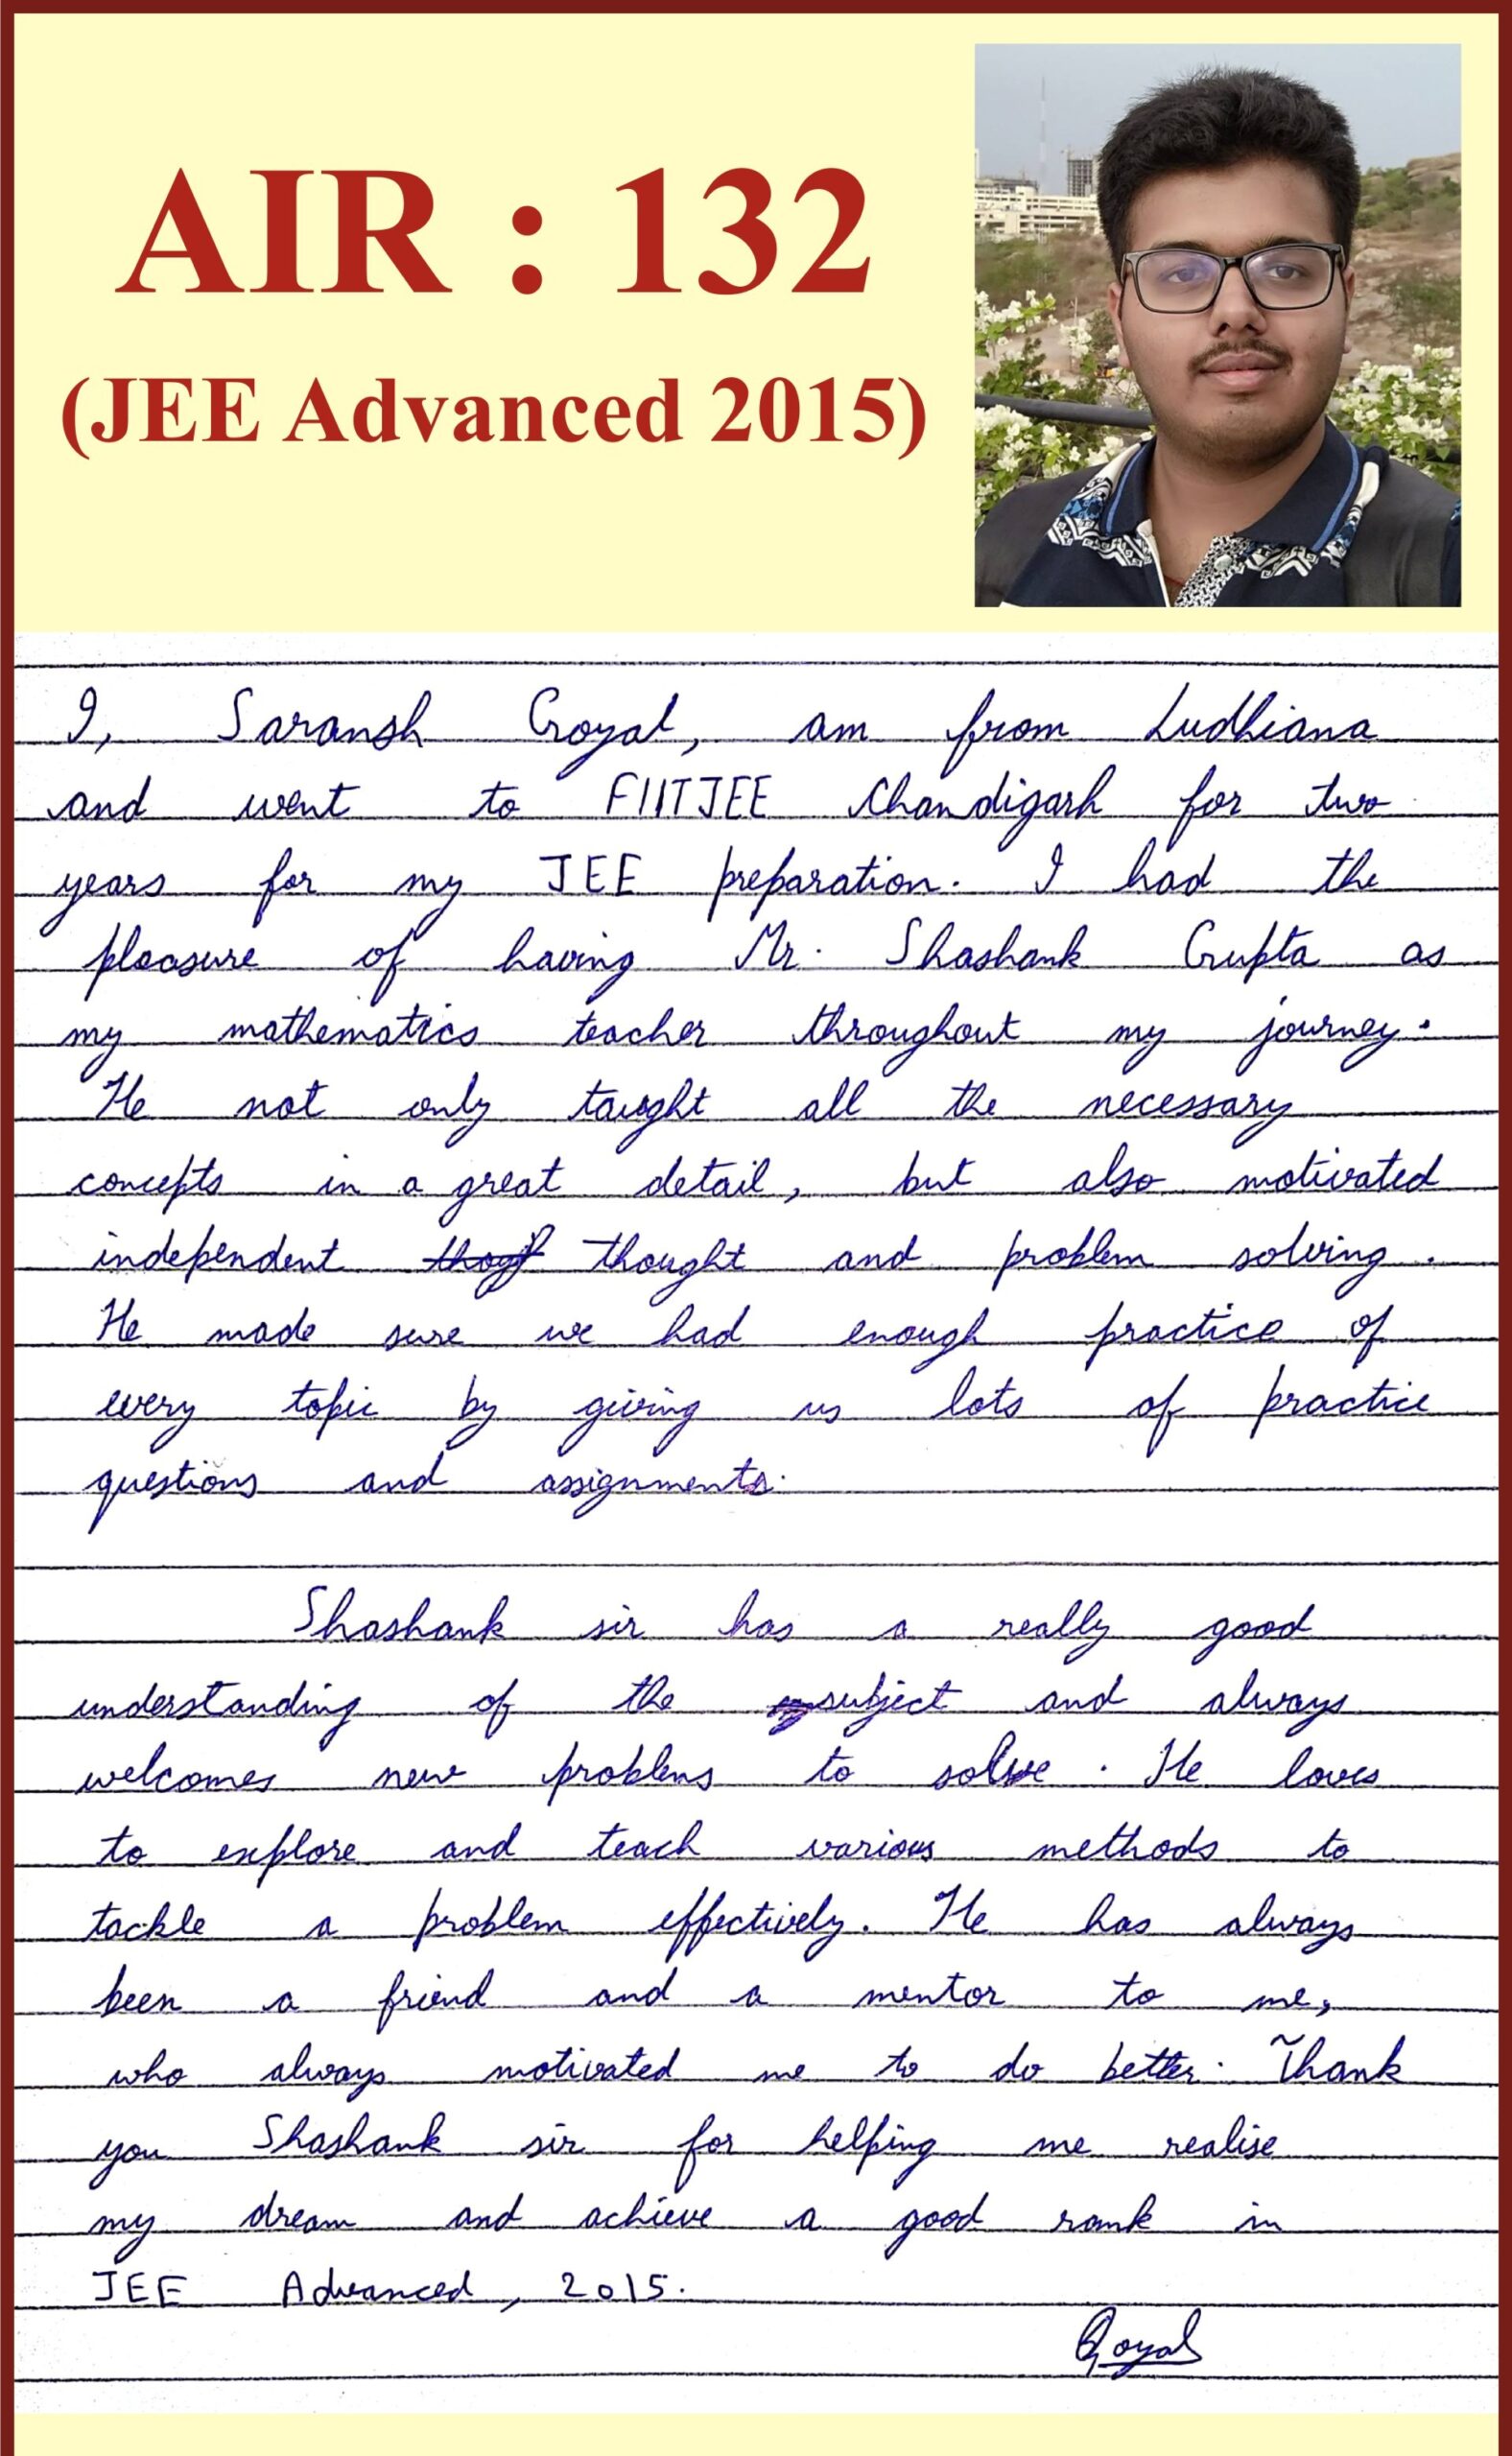 AIR : 132
(JEE Advanced 2015)
I, Saransh Goyal, am from Ludhiana
and went to FIITJEE Chandigarh for two
years for my JEE preparation. I had the
pleasure of having Mr. Shashank Gupta as
my mathematics teacher throughout my journey.
He not only taught all the necessary
concepts in a great detail, but also motivated
independent thought and problem solving.
He made sure we had enough practice of
every topic by giving us lots of practice
questions and assignments.
Shashank sir has a really good
understanding of the subject and always
welcomes new problems to solve. He loves
to explore and teach various methods to
tackle a problem effectively. He has always
been a friend and a mentor to me,
who always motivated me to do better. Thank
you Shashank sir for helping me realise
my dream and achieve a good rank in
JEE Advanced, 2015.
Goyal